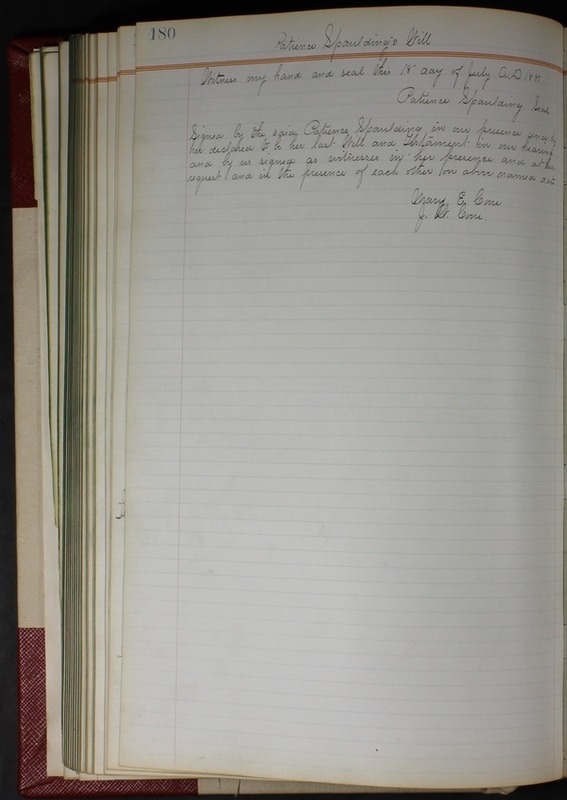 180
Patience Spaulding's Will
Witness my hand and seal this 18 day of July A.D. 18
Patience Spaulding Seal
Signed by the said Patience Spaulding in our presence and by
her declared to be her last Will and Testament in our hearing
and by us signed as witnesses in her presence and at her
request and in the presence of each other on above named date
Mary E. Cone
J. W. Cone